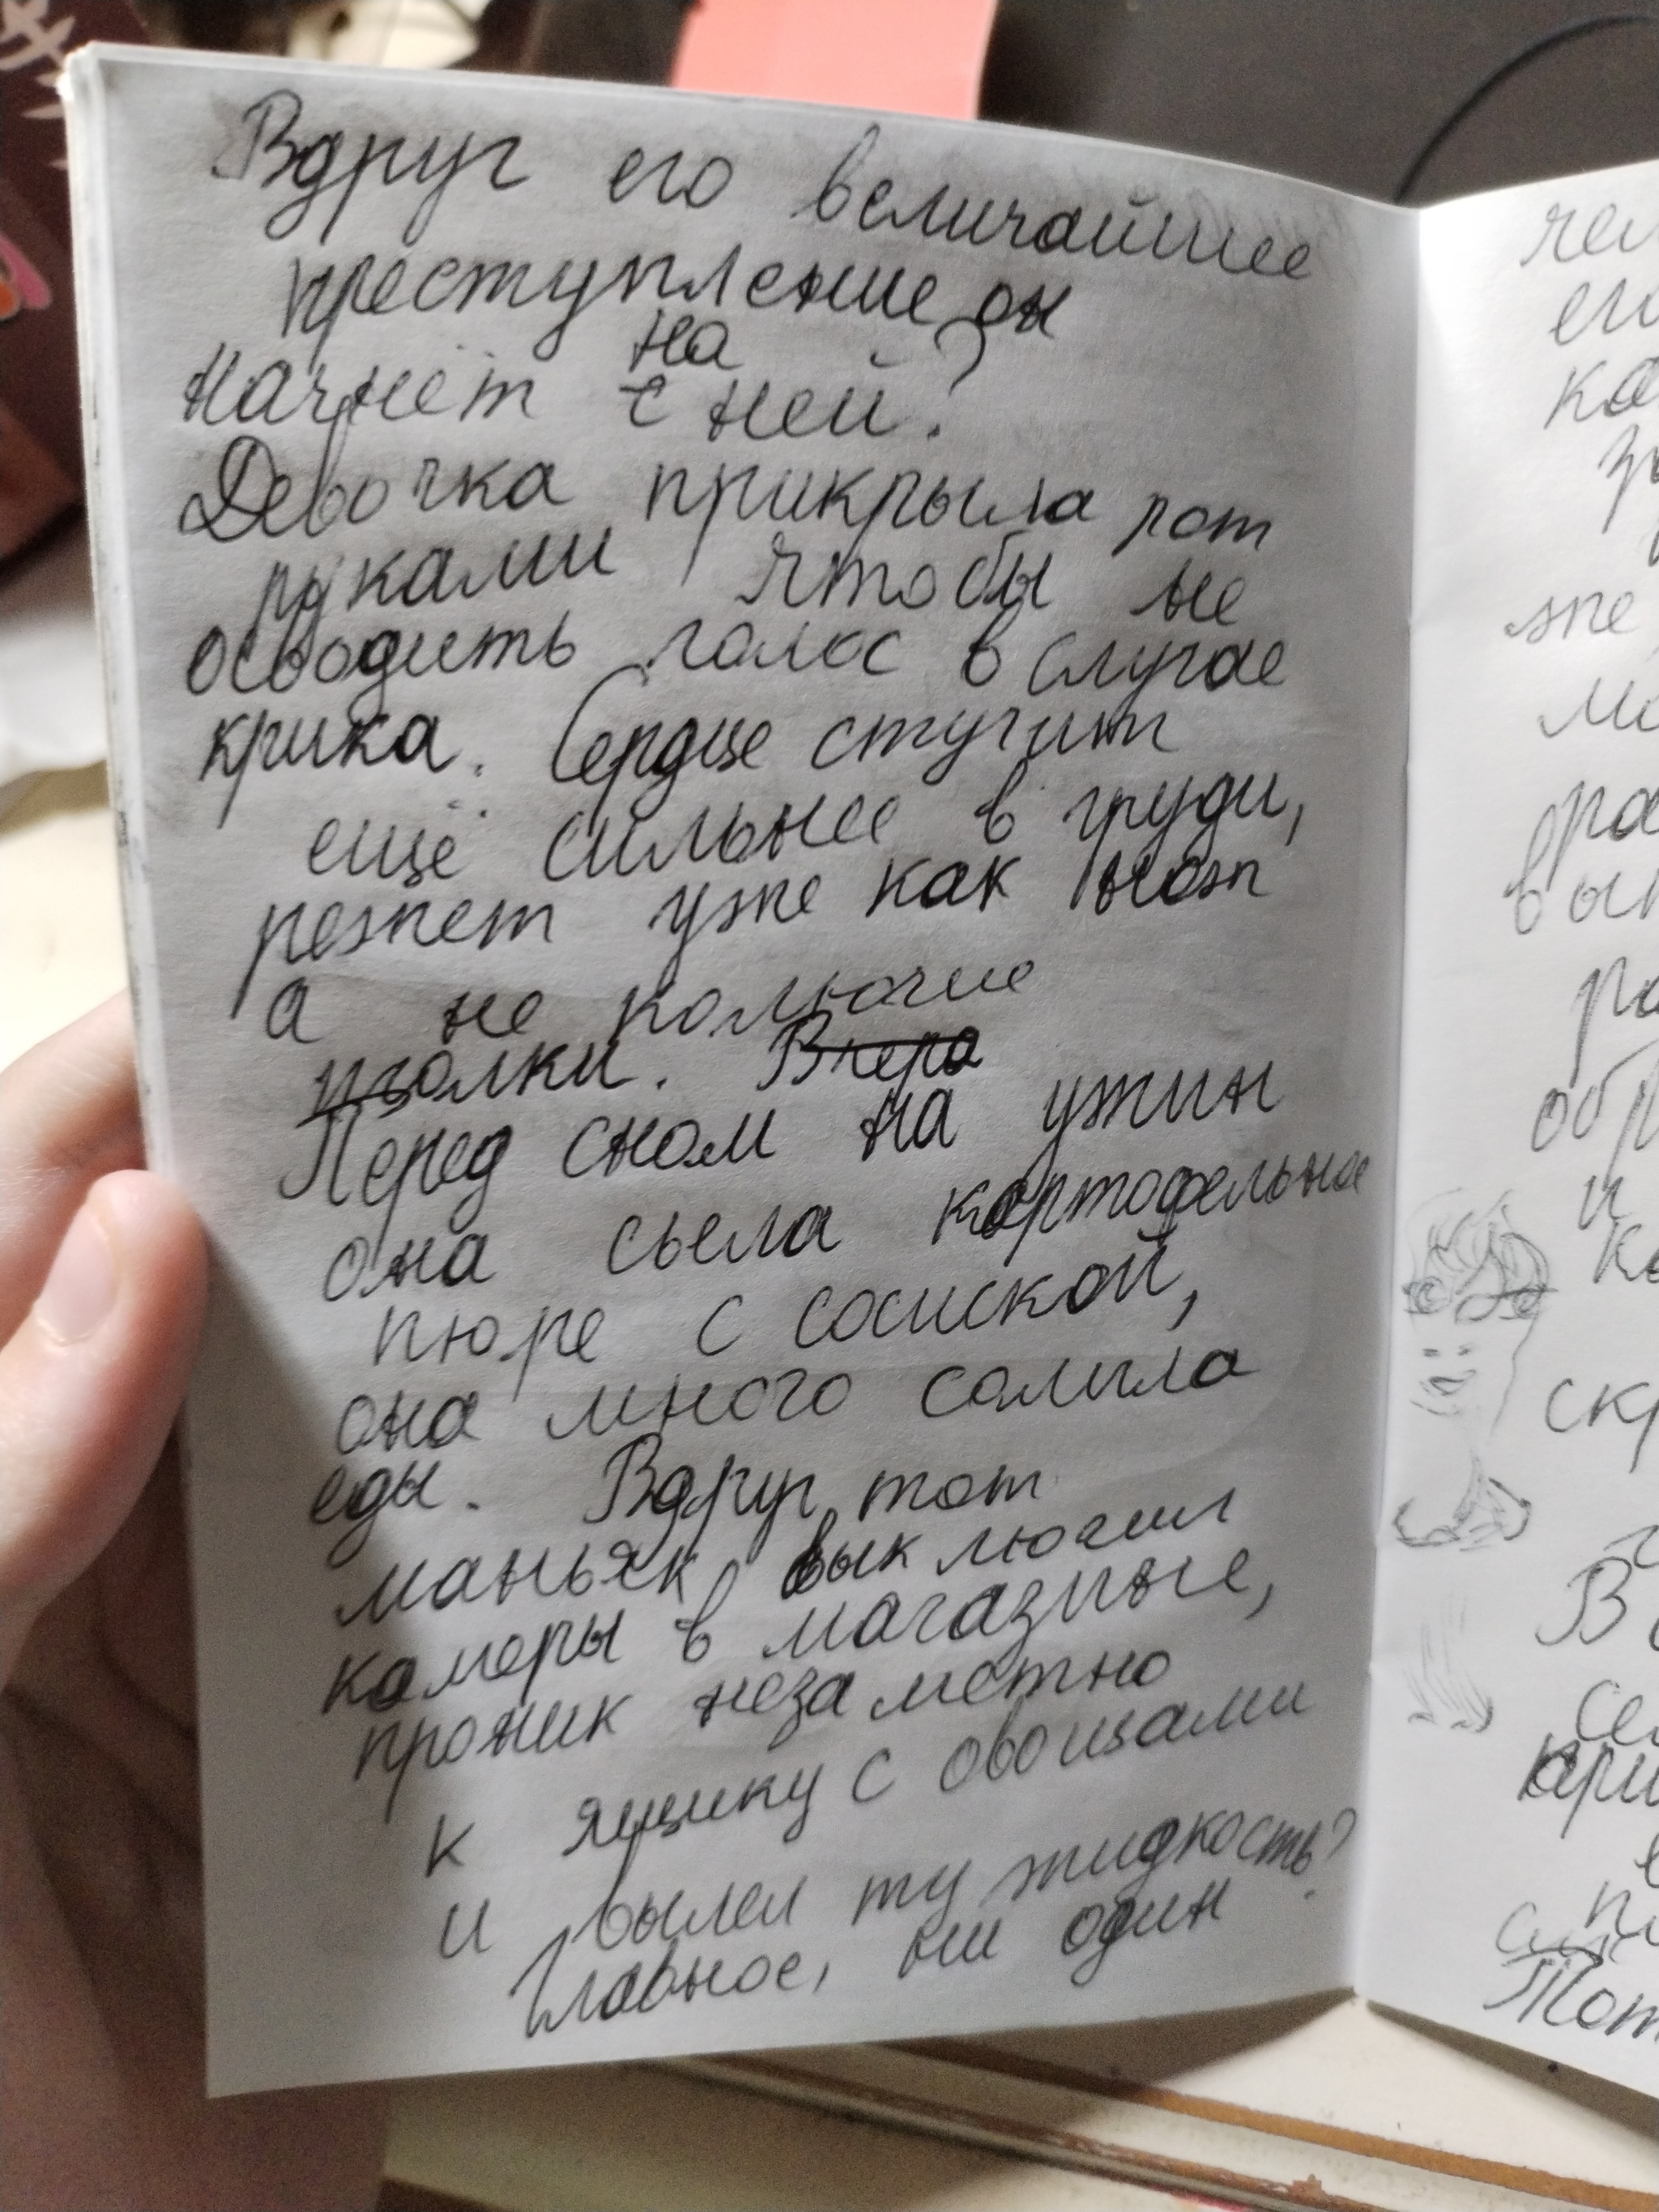 Вдруг его величайшее
преступление он
на
начнёт с ней?
Девочка прикрыла рот
руками чтобы не
освободить голос в случае
крика. Сердце стучит
ещё сильнее в груди,
режет уже как нож
а не колючие
иголки. Вчера
Перед сном на ужин
она сьела картофельное
пюре с сосиской,
она много солила
еды. Вдруг, тот
маньяк выключил
камеры в магазине,
проник незаметно
к ящику с овощами
и вылел ту жидкость?
Главное, ни один
чел
его
ка
же
ра
вып
ра
обр
и
ка
скр
В
сел
кри
п
Тот